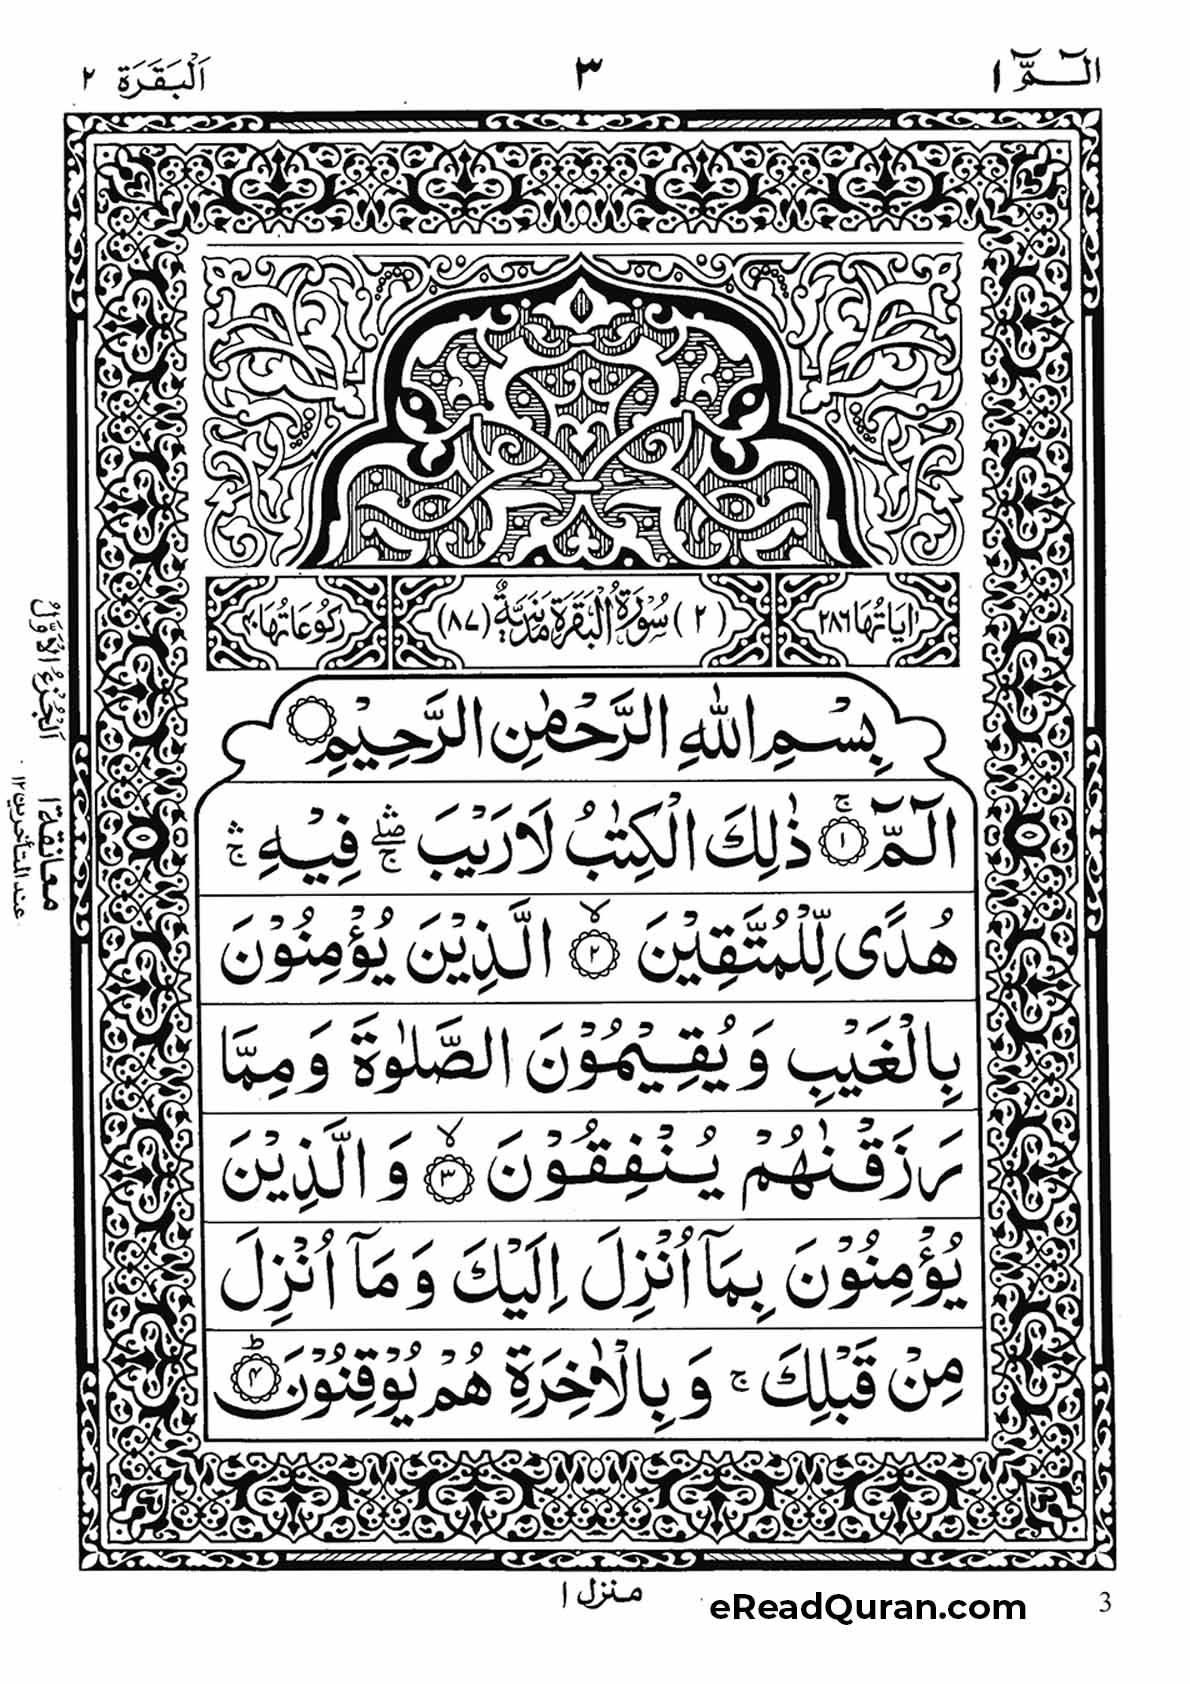 الٓـمّٓ ١
٣
اَلْبَقَرَة ٢
اٰيَاتُهَا ٢٨٦
(٢) سُوْرَةُ الْبَقَرَةِ مَدَنِيَّةٌ (٨٧)
رُكُوْعَاتُهَا ٤٠
بِسْمِ اللّٰهِ الرَّحْمٰنِ الرَّحِيْمِ
الٓـمّٓ ۚ ﴿١﴾ ذٰلِكَ الْكِتٰبُ لَا رَيْبَ ۛۖۚ فِيْهِ ۛۚ
هُدًى لِّلْمُتَّقِيْنَ ۙ ﴿٢﴾ الَّذِيْنَ يُؤْمِنُوْنَ
بِالْغَيْبِ وَ يُقِيْمُوْنَ الصَّلٰوةَ وَ مِمَّا
رَزَقْنٰهُمْ يُنْفِقُوْنَ ۙ ﴿٣﴾ وَ الَّذِيْنَ
يُؤْمِنُوْنَ بِمَاۤ اُنْزِلَ اِلَيْكَ وَ مَاۤ اُنْزِلَ
مِنْ قَبْلِكَ ۚ وَ بِالْاٰخِرَةِ هُمْ يُوْقِنُوْنَ ؕ ﴿٤﴾
اَلْجُزْءُ الْاَوَّلُ
معانقة ١
عند المتأخرين ١٢
منزل ١
eReadQuran.com
3